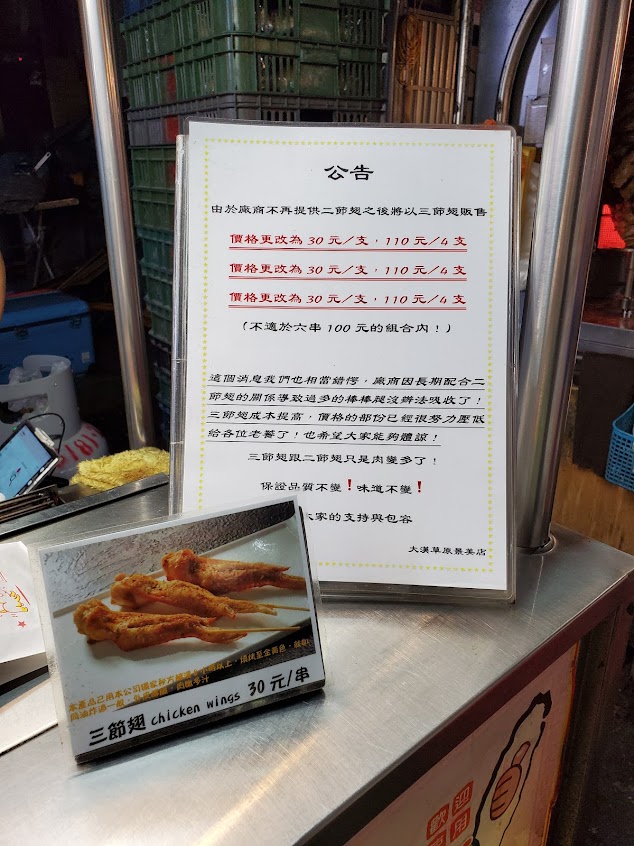 公告
由於廠商不再提供二節翅之後將以三節翅販售
價格更改為 30 元/支，110 元/4 支
價格更改為 30 元/支，110 元/4 支
價格更改為 30 元/支，110 元/4 支
（不適於六串 100 元的組合內！）
這個消息我們也相當錯愕，廠商因長期配合二
節翅的關係導致過多的棒棒腿沒辦法吸收了！
三節翅成本提高，價格的部份已經很努力壓低
給各位老饕了！也希望大家能夠體諒！
三節翅跟二節翅只是肉變多了！
保證品質不變！味道不變！
大家的支持與包容
大漢草原景美店
三節翅 chicken wings 30 元/串
歡迎